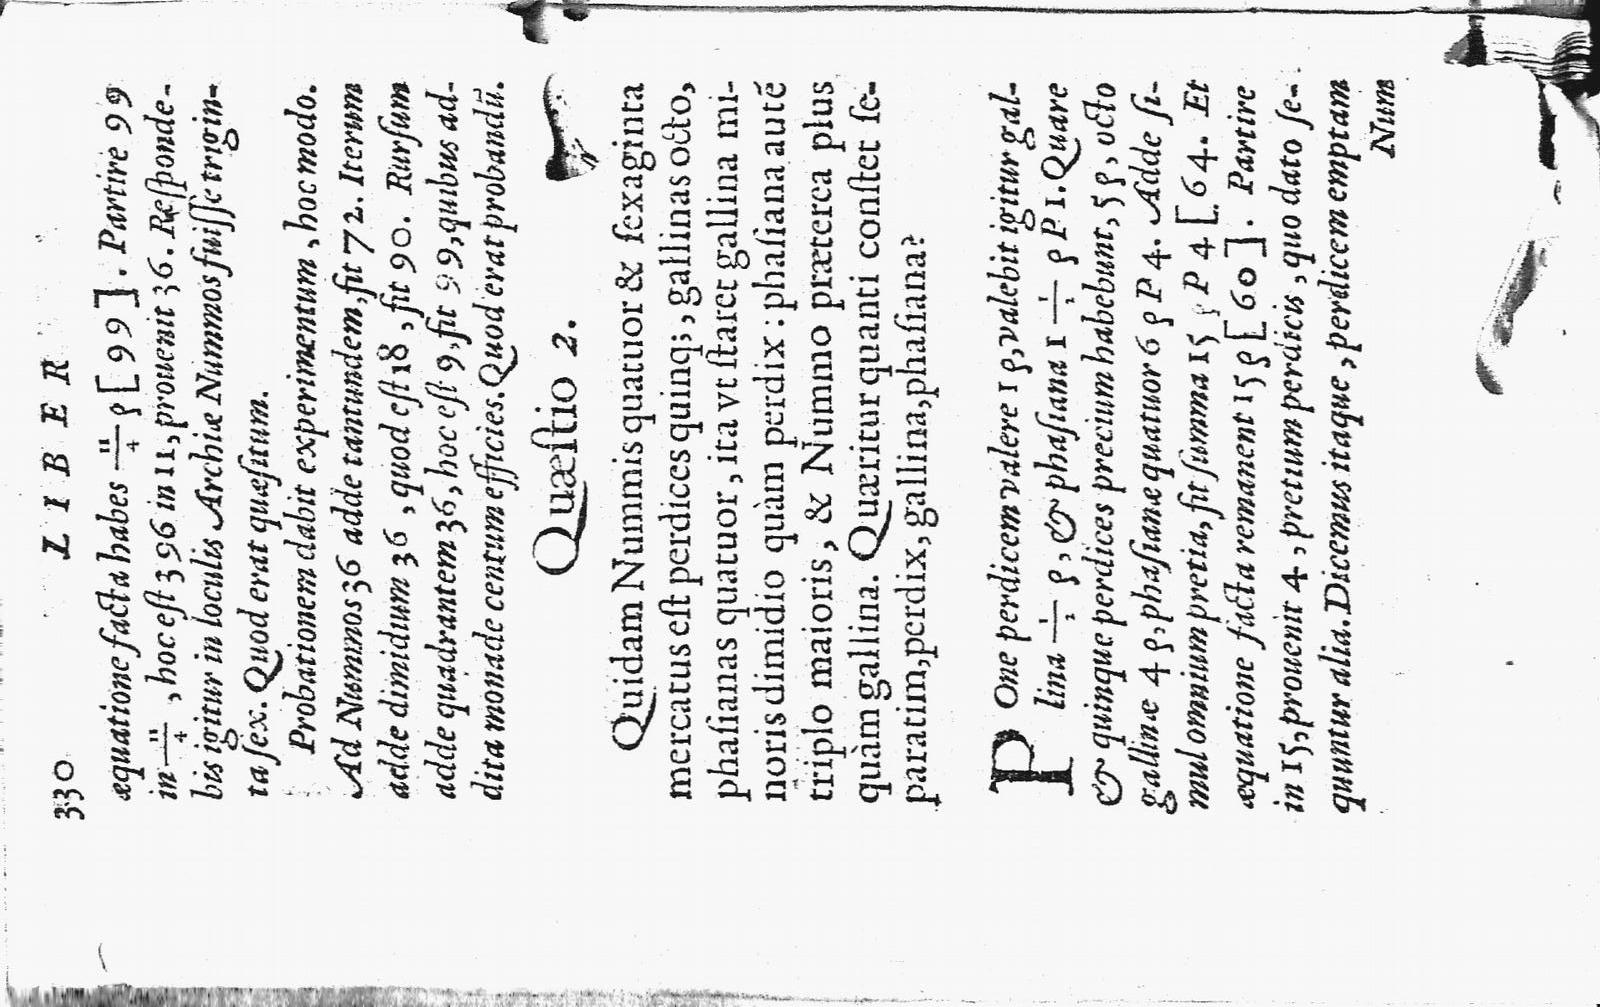 330 LIBER
æquatione facta habes 11/4 ρ [99]. Partire 99
in 11/4, hoc est 396 in 11, prouenit 36. Responde-
bis igitur in loculis Archiæ Nummos fuiſſe trigin-
ta ſex. Quod erat quæſitum.
Probationem dabit experimentum, hoc modo.
Ad Nummos 36 adde tantundem, fit 72. Iterum
adde dimidium 36, quod eſt 18, fit 90. Rurſum
adde quadrantem 36, hoc eſt 9, fit 99, quibus ad-
dita monade centum efficies. Quod erat probandũ.
Quæſtio 2.
Quidam Nummis quatuor & ſexaginta
mercatus eſt perdices quinq;, gallinas octo,
phaſianas quatuor, ita vt ſtaret gallina mi-
noris dimidio quàm perdix: phaſiana auté
triplo maioris, & Nummo præterea plus
quàm gallina. Quæritur quanti conſtet ſe-
paratim, perdix, gallina, phaſiana?
POne perdicem valere 1ρ, valebit igitur gal-
lina 1/2 ρ, & phaſiana 1 1/2 ρ P 1. Quare
& quinque perdices precium habebunt, 5ρ, octo
gallinæ 4ρ, phaſianæ quatuor 6ρ P 4. Adde ſi-
mul omnium pretia, fit ſumma 15ρ P 4 [64. Et
æquatione facta remanent 15ρ [60]. Partire
in 15, prouenit 4, pretium perdicis, quo dato ſe-
quuntur alia. Dicemus itaque, perdicem emptam
Num